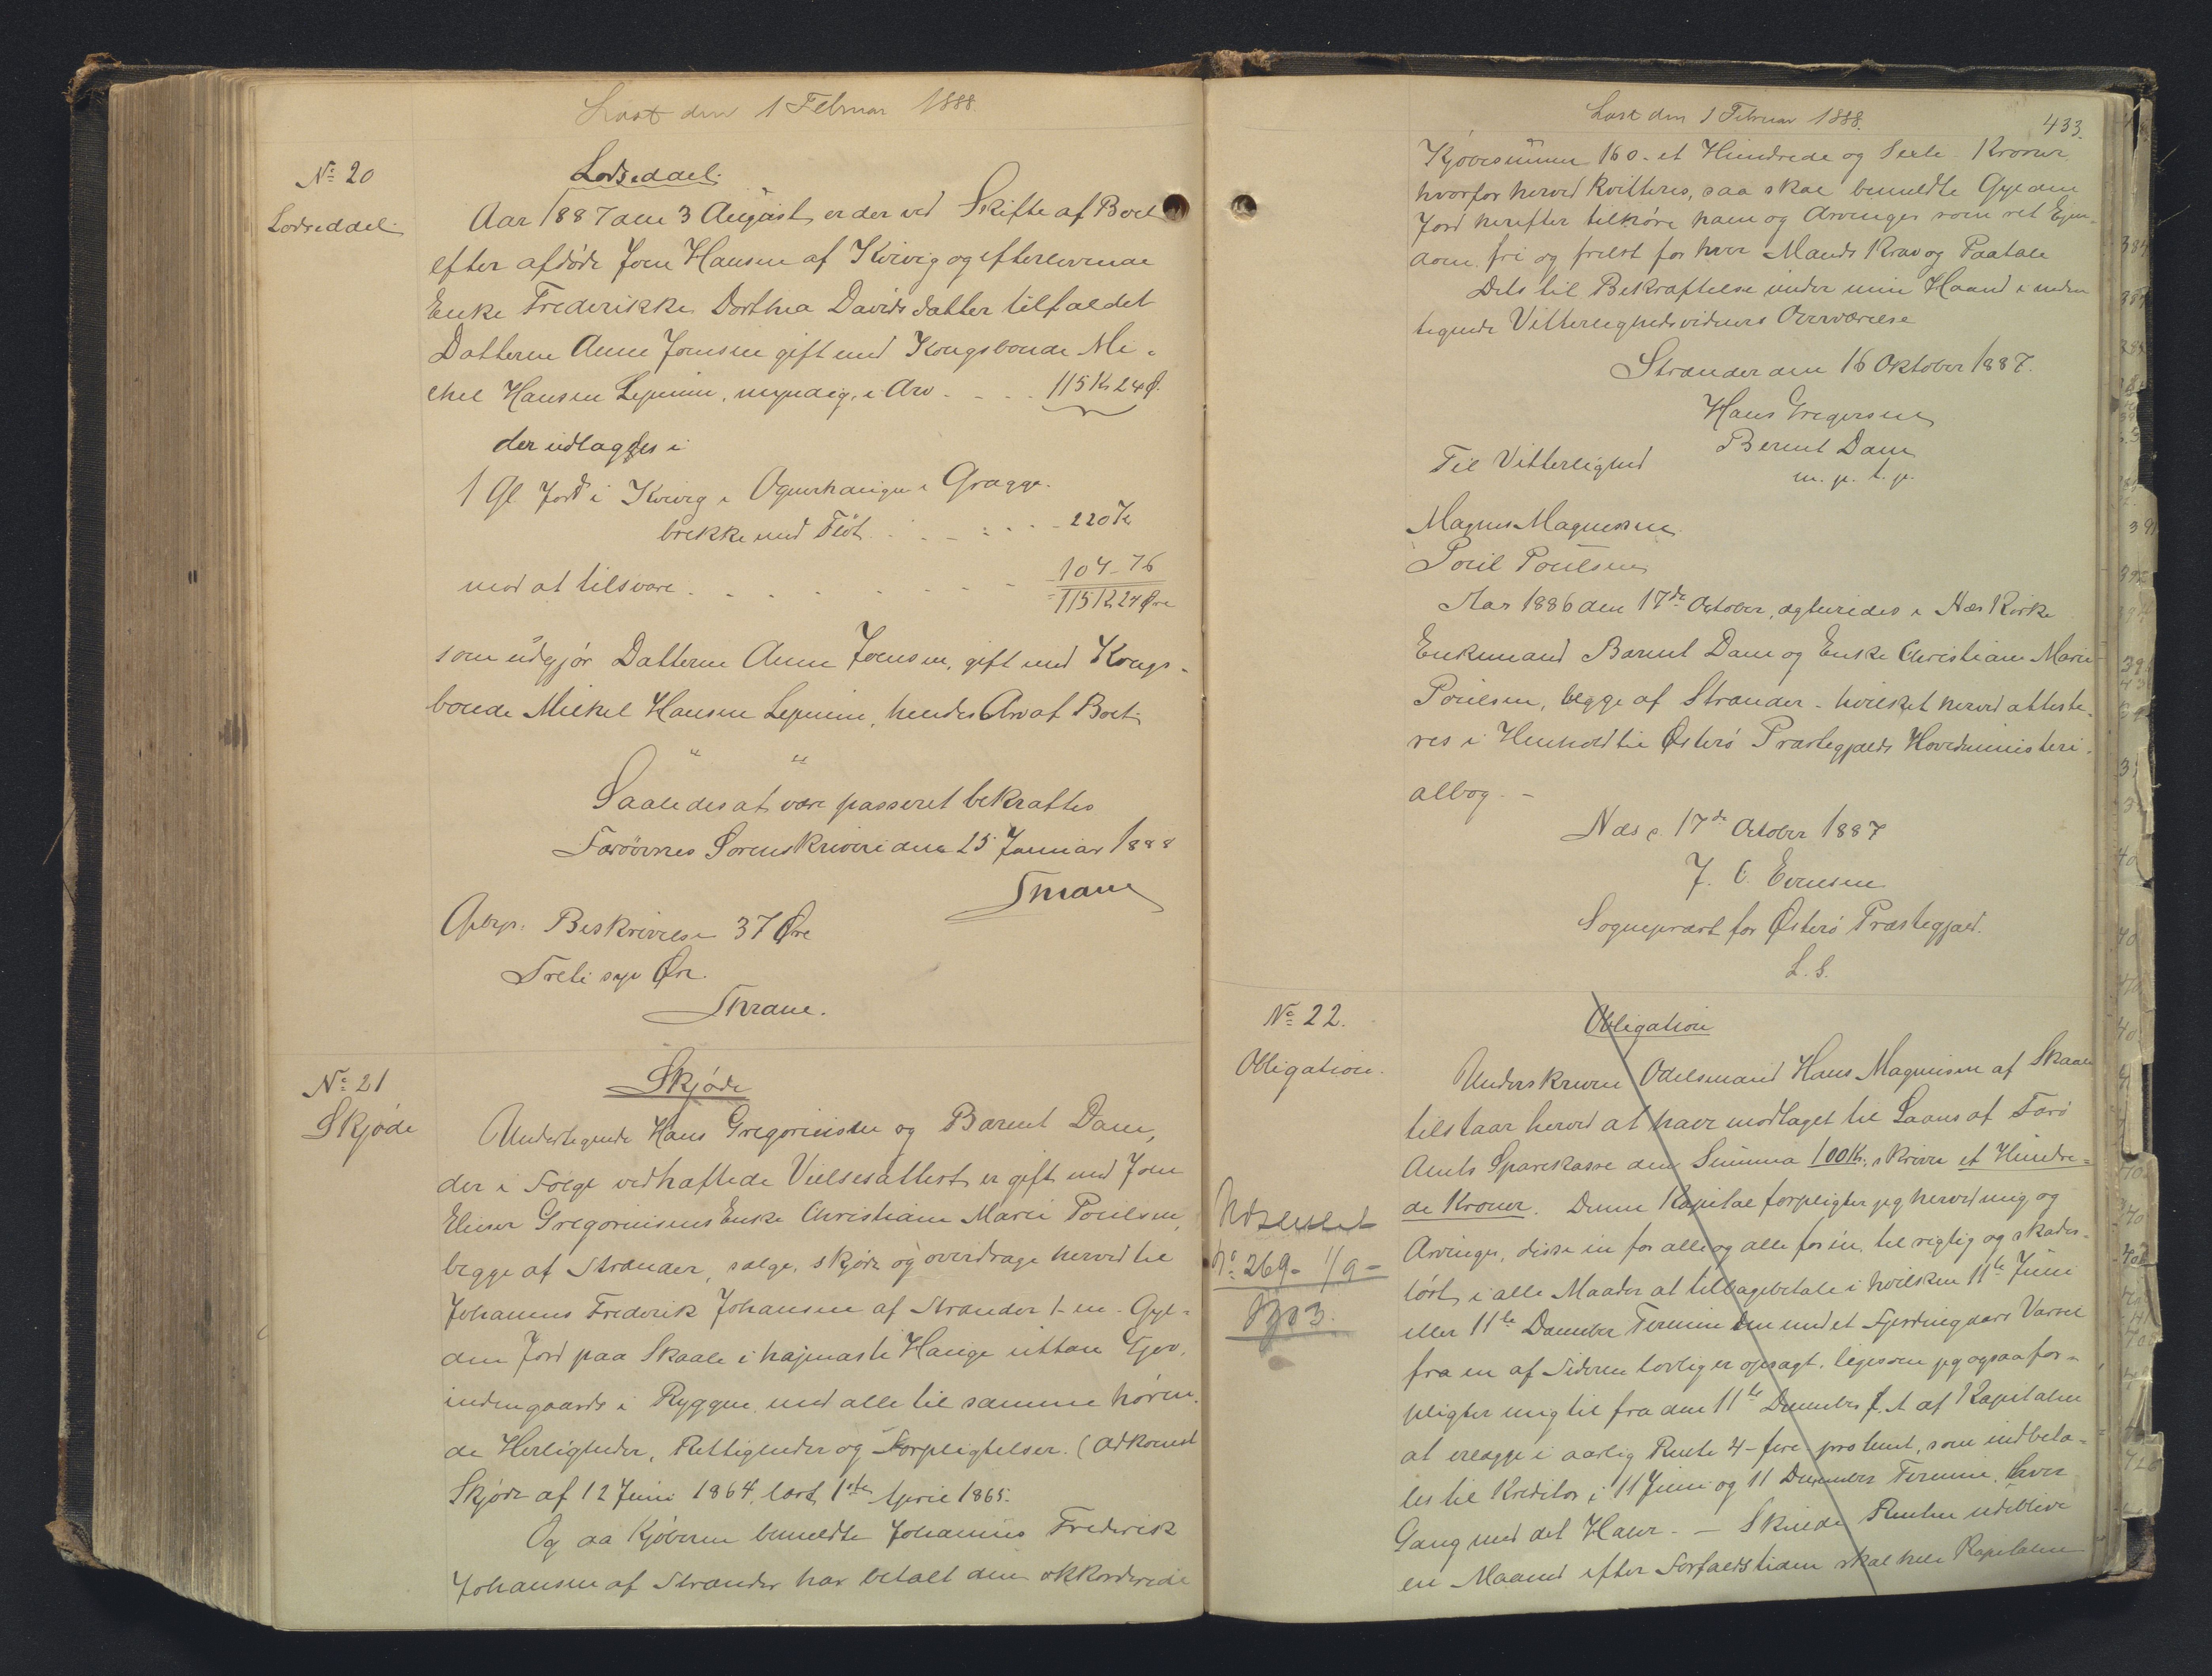 Læst den 1 Februar 1888.
No 20
Lodseddel.
Lodseddel.
Aar 1887 den 3 August, er der ved Skifte af Boet
efter afdøde Joen Hansen af Kvivig og efterlevende
Enke Frederikke Dorthea Davidsdatter tilfaldet
Datteren Anne Joensen gift med Kongsbonde Mi-
chel Hansen Lejnum, myndig, i Arv . . . . 115 Kr 24 Ø.
der udlagdes i
1 Gl Jord i Kvivig i Ognerhaugen i Gragge-
brekke med Fløt . . . . . . 220 Kr
mod at tilsvare . . . . . . . 104-76
= 115 Kr 24 Øre
som udgjør Datteren Anne Joensen, gift med Kongs-
bonde Michel Hansen Lejnum, hendes Arv af Boet
Saaledes at være passeret bekræftes
Færøernes Sorenskriveri den 25 Januar 1888
Thrane
Gebyr: Beskrivelse 37 Øre
Treti syv Øre.
Thrane.
No 21
Skjøde
Skjøde
Undertegnede Hans Gregoriussen og Barent Dam,
der i Følge vedhæftede Vielsesattest er gift med Joen
Elieser Gregoriusens Enke Christiane Marie Poulsen,
begge af Strander, sælge, skjøde og overdrage herved til
Johannes Frederik Johansen af Strander 1- en - Gyl-
den Jord paa Skaale i højmaste Hauge uttan Gjov,
indengaards i Ryggen, med alle til samme høren-
de Herligheder, Rettigheder og Forpligtelser. (Adkomst
Skjøde af 12 Juni 1864, læst 1ste April 1865.
Og aa Kjøberen bemeldte Johannes Frederik
Johansen af Strander har betalt den akkorderede
Læst den 1 Februar 1888.
433.
Kjøbesummen 160 - et Hundrede og Sexti - Kroner
hvorfor herved kvitteres, saa skal bemeldte Gylden
Jord herefter tilhøre ham og Arvinger som ret Ejen-
dom fri og frelst for hver Mands Krav og Paatale
Dets til Bekræftelse under min Haand i neden
tegnede Vitterlighedsvidners Overværelse
Strander den 16 Oktober 1887.
Hans Gregersen
Bernt Dam
m. p. t. p.
Til Vitterlighed
Magnus Magnussen
Poul Poulsen
Aar 1886 den 17de October, ægteviedes i Næs Kirke
Enkemand Barent Dam og Enke Christiane Marie
Poulsen, begge af Strander - hvilket herved atteste-
res i Henhold til Østerø Præstegjælds Hovedministeri-
albog. -
Næs d. 17de October 1887
J. C. Evensen
Sognepræst for Østerø Præstegjæld.
L. S.
No 22.
Obligation.
Obligation
Underskreven Odelsmand Hans Magnusen af Skaale
tilstaar herved at have modtaget til Laans af Færø
Amts Sparekasse den Summa 100 Kr, skriver et Hundre-
de Kroner. Denne Kapital forpligter jeg herved mig og
Arvinger, disse én for alle og alle for én, til rigtig og skades-
løst i alle Maader at tilbagebetale i hvilken 11te Juni
eller 11te December Termin den med et Fjerdingaars Varsel
fra en af Siderne lovlig er opsagt, ligesom jeg ogsaa for-
pligter mig til fra den 11te December f. A af Kapitalen
at erlægge i aarlig Rente 4 - fire - procent, som indbeta-
les til Kreditor i 11 Juni og 11 December Termin, hver
Gang med det Halve. - Skulde Renten udeblive
en Maaned efter Forfaldstiden skal hele Kapitalen
No 269 - 1/9 -